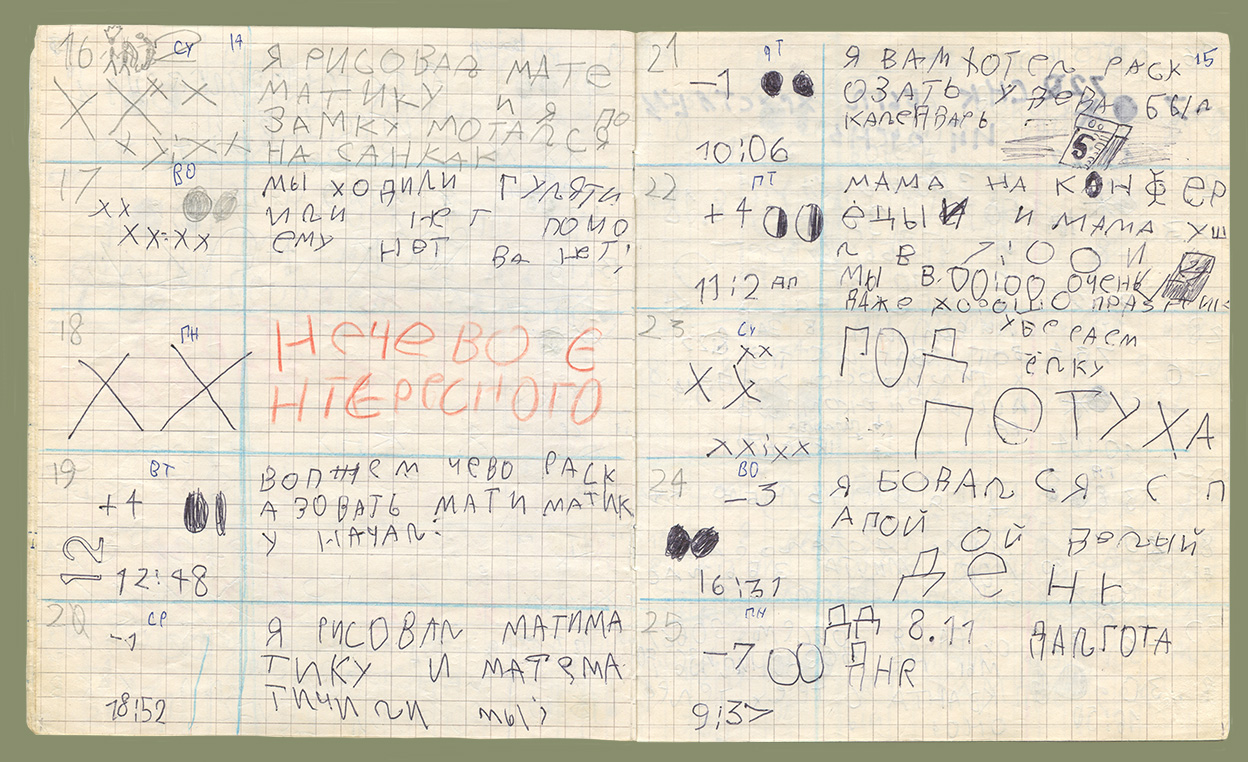 16 СУ 14
Я РИСОВАЛ МАТЕ
МАТИКУ И Я ПО
ЗАМКУ МОТАЛСЯ
НА САНКАК
ХХ ХХ
ХХ:ХХ
17 ВО
ХХ
ХХ:ХХ
МЫ ХОДИЛИ ГУЛЯТИ
ИЛИ НЕТ ПОМО
ЕМУ НЕТ ВА НЕТ!
18 ПН
ХХ
НЕЧЕВО Е
НТЕРЕСНОГО
19 ВТ
+4
12
12:48
ВОПЖЕМ ЧЕВО РАСК
АЗОВАТЬ МАТИМАТИК
У НАЧАЛ:
20 СР
-1
18:52
Я РИСОВАЛ МАТИМА
ТИКУ И МАТЕМА
ТИЧИЛИ МЫ
21 ЧТ 15
-1
10:06
Я ВАМ ХОТЕЛ РАСК
ОЗАТЬ У ВЕВА БЫЛ
КАЛЕНВАРЬ
5
22 ПТ
+4
11:2
МАМА НА КОНФЕР
ЕЦЫИ И МАМА УШ
Л В 7:00 И
МЫ В 00:00 ОЧЕНЬ
ДАЖЕ ХОРОШО
23 СУ
ХХ
ХХ
ХХ:ХХ
ГОД УБЕРАЕМ
ЁЛКУ
ПЕТУХА
24 ВО
-3
16:31
Я БОВАЛСЯ С П
АПОЙ ОЙ БЕЛЫЙ
ДЕНЬ
25 ПН
-7
9:37
ДД 8.11 ДАЛГОТА
ДНЯ